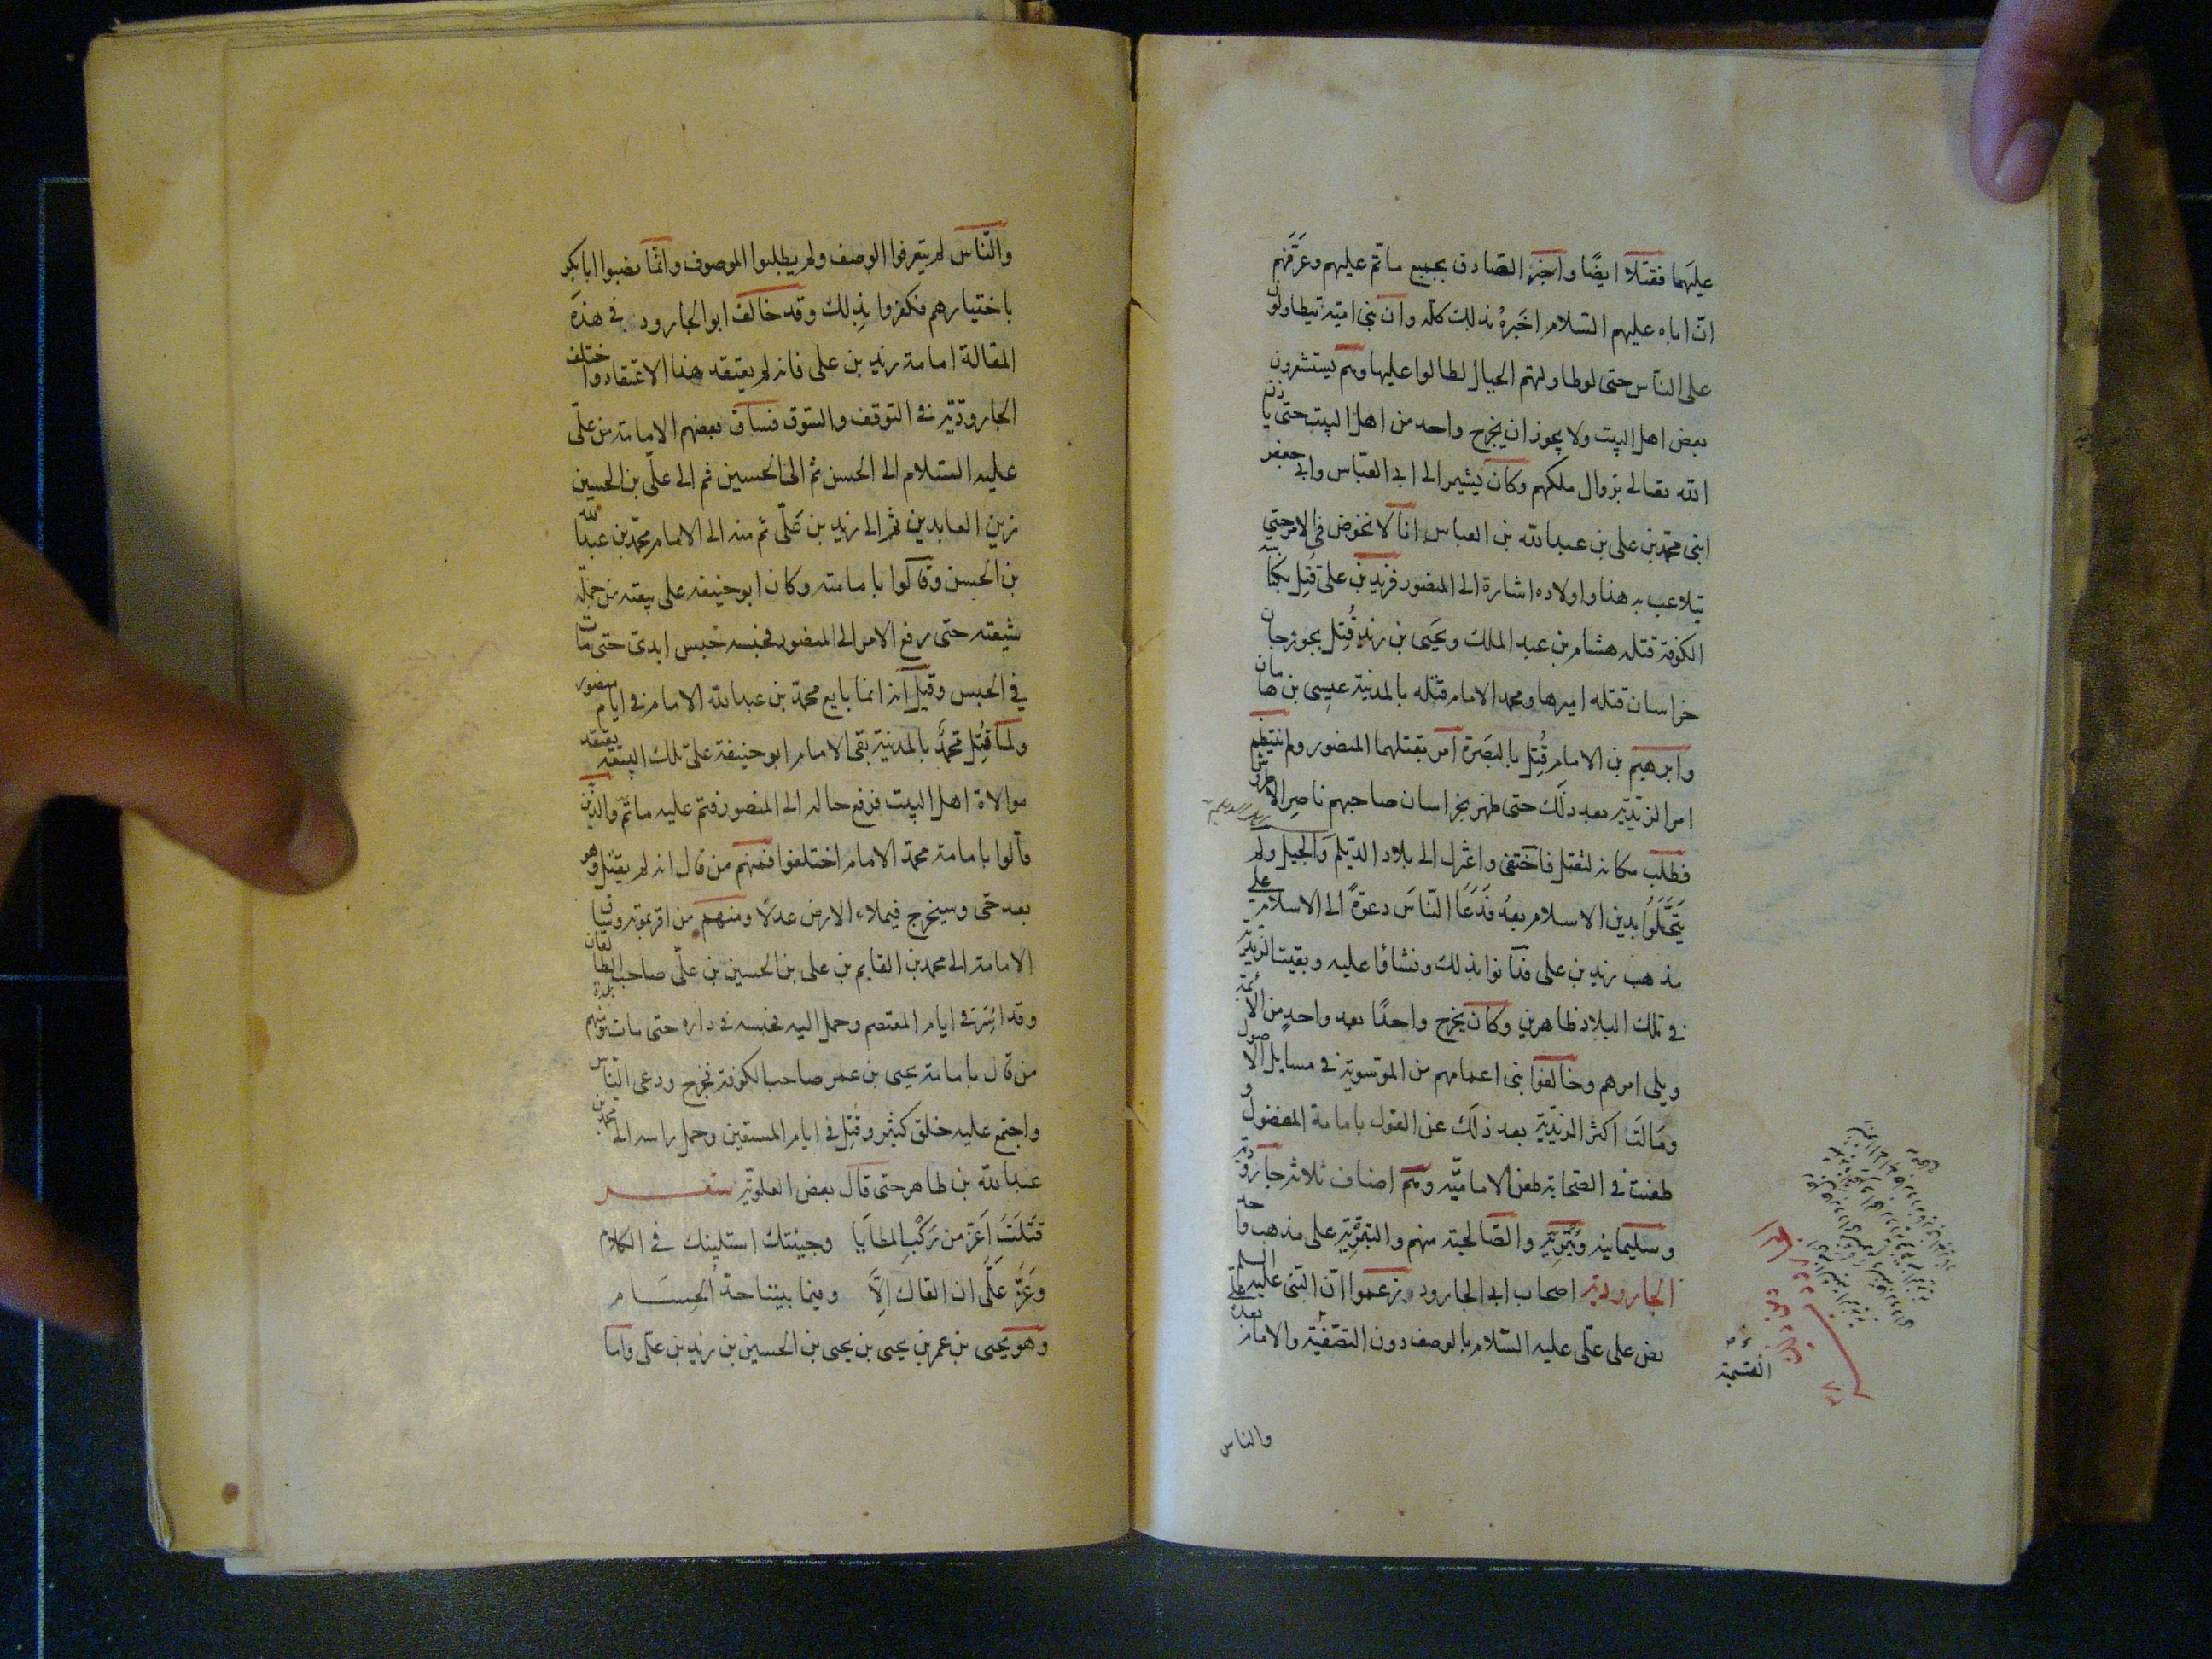 عليهما فقتلا ايضًا واخبره الصّادق بجميع ما تم عليهم وعرّفهم
انّ اباه عليهم السّلام اخبره بذلك كلّه وان بنى اميّة يتطاولون
على النّاس حتى لو طاولتهم الجبال لطالوا عليها وهم يستشعرون
بعض اهل البيت ولا يجوز ان يخرج واحد من اهل البيت حتى ياذن
الله تعالى بزوال ملكهم وكان يشير الى ابى العبّاس وابى جعفر
ابنى محمّد بن على بن عبد الله بن العباس انا لا نخوض فى الامر حتى
يتلاعب به هذا واولاده اشارة الى المنصور فزيد بن على قتل بكناسة
الكوفة قتله هشام بن عبد الملك ويحيى بن زيد قُتل بجوزجان
خراسان قتله اميرها ومحمد الامام قتله بالمدينة عيسى بن هامان
وابرهيم بن الامام قُتِل بالبصرة امر بقتلهما المنصور ولم ينتظم
امر الزيديّة بعد ذلك حتى ظهر بخراسان صاحبهم ناصر الاطروش
فطلب مكانه لتقتل فاختفى واعتزل الى بلاد الدّيلم والجبل ولم
يتحَلَّوا بدين الاسلام بعدُ فَدَعَا النّاسَ دعوةً الى الاسلام على
مذهب زيد بن على فدانوا بذلك ونشاؤا عليه وبقيت الزيدية
فى تلك البلاد ظاهرين وكان يخرج واحدًا بعد واحدٍ من الائمة
ويلى امرهم وخالفوا بنى اعمامهم من الموسوية فى مسايل الاصول
ومالت اكثر الزيديّة بعد ذلك عن القول بامامة المفضول و
طعنت فى الصّحابة طعن الاماميّة وهم اصناف ثلاثه جاروديّة
وسليمانية وبُتريّة والصّالحية منهم والبتريّة على مذهب واحد
الجاروديّة اصحاب ابى الجارود زعموا انّ النّبى عليه السلم
نص على علّى عليه السّلام بالوصف دون التسمية والامام بعده علّى
والناس
والنّاس لم يتعرفوا الوصف ولم يطلبوا الموصوف وانّما نصبوا ابا بكر
باختيارهم فكفروا بذلك وقد خالف ابو الجارود فى هذه
المقالة امامة زيد بن على فانه لم يعتقد هذا الاعتقاد واختلف
الجاروديّة فى التوقف والسّوق فساق بعضهم الامامة من علّى
عليه السّلام الى الحسن ثم الى الحسين ثم الى علّى بن الحسين
زين العابدين ثم الى زيد بن علّى ثم منه الى الامام محمّد بن عبد الله
بن الحسن وقالوا بامامته وكان ابو حنيفه على بيعته من جملة
شيعته حتى رفع الامر الى المنصور فحبسه حبس ابدىّ حتى مات
فى الحبس وقيل انه انما بايع محمّد بن عبد الله الامام فى ايام منصور
ولما قُتِل محمّدٌ بالمدينة بقى الامام ابو حنيفة على تلك البيعة يعتقد
موالاة اهل البيت فرفع حاله الى المنصور فتم عليه ما تَمّ والذين
قالوا بامامة محمّد الامام اختلفوا فمنهم من قال انه لم يقتل وهو
بعد حىّ وسيخرج فيملاء الارض عدلًا ومنهم من اقر بموته وساق
الامامة الى محمد بن القايم بن على بن الحسين بن علّى صاحب الطالقان
وقد اُسِرَ فى ايام المعتصم وحمل اليه فحبسه فى داره حتى مات ومنهم
من قال بامامة يحيى بن عمر صاحب الكوفة فخرج ودعى النّاس
واجتمع عليه خلق كثير وقُتِل فى ايام المستعين وحمل راسه الى محمد بن
عبد الله بن طاهر حتى قال بعض العلويّة شعر
قَتَلْتَ اَعَزّ من رَكْبِ المطَايا وجيئتك استلينك فى الكلام
وعَزَّ عَلَّى ان القاك اِلَّا وفيما بيننا حدّ الحسَام
وهو يحيى بن عمر بن يحيى بن يحيى بن الحسين بن زيد بن على واما